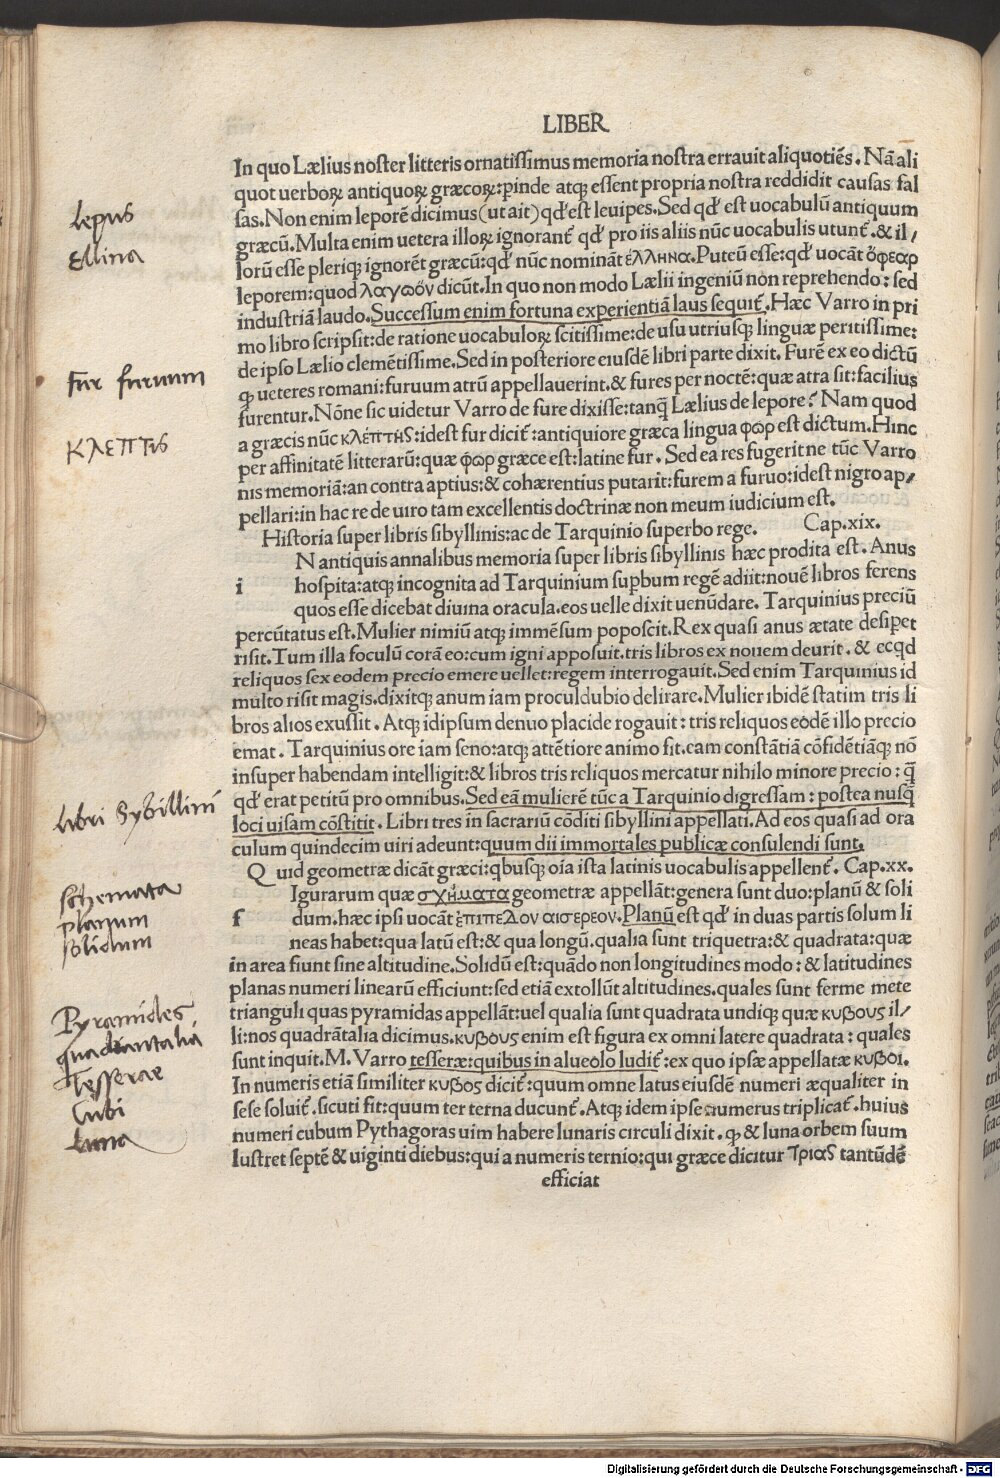 LIBER
In quo Lælius noster litteris ornatissimus memoria nostra errauit aliquotiēs. Nā ali
quot uerboꝝ antiquoꝝ græcoꝝ: ꝑinde atqꝫ essent propria nostra reddidit causas fal
sas. Non enim leporē dicimus (ut ait) qđ est leuipes. Sed qđ est uocabulū antiquum
græcū. Multa enim uetera illoꝝ ignorant̃ qđ pro iis aliis nūc uocabulis utunt̃. & il/
lorū esse pleriqꝫ ignorēt græcū: qđ nūc nomināt ἑλληνα. Puteū esse: qđ uocāt ὄφεαρ
leporem: quod λαγωὸν dicūt. In quo non modo Lælii ingeniū non reprehendo: sed
industriā laudo. Successum enim fortuna experientiā laus sequit̃. Hæc Varro in pri
mo libro scripsit: de ratione uocabuloꝝ scitissime: de usu utriusqꝫ linguæ peritissime:
de ipso Lælio clemētissime. Sed in posteriore eiusdē libri parte dixit. Furē ex eo dictū
ꝙ ueteres romani: furuum atrū appellauerint. & fures per noctē: quæ atra sit: facilius
furentur. Nōne sic uidetur Varro de fure dixisse: tanꝗ Lælius de lepore? Nam quod
a græcis nūc κλέπτης: idest fur dicit̃: antiquiore græca lingua φωρ est dictum. Hinc
per affinitatē litterarū: quæ φωρ græce est: latine fur. Sed ea res fugerit ne tūc Varro
nis memoriā: an contra aptius: & cohærentius putarit: furem a furuo: idest nigro ap/
pellari: in hac re de uiro tam excellentis doctrinæ non meum iudicium est.
Historia super libris sibyllinis: ac de Tarquinio superbo rege. Cap.xix.
N antiquis annalibus memoria super libris sibyllinis hæc prodita est. Anus
i hospita: atqꝫ incognita ad Tarquinium suꝑbum regē adiit: nouē libros ferens
quos esse dicebat diuina oracula. eos uelle dixit uenūdare. Tarquinius preciū
percūtatus est. Mulier nimiū atqꝫ immēsum poposcit. Rex quasi anus ætate desiꝑet
risit. Tum illa foculū corā eo: cum igni apposuit. tris libros ex nouem deurit. & ecqđ
reliquos sex eodem precio emere uellet: regem interrogauit. Sed enim Tarquinius id
multo risit magis. dixitqꝫ anum iam proculdubio delirare. Mulier ibidē statim tris li
bros alios exussit. Atqꝫ idipsum denuo placide rogauit: tris reliquos eodē illo precio
emat. Tarquinius ore iam seno: atqꝫ attētiore animo fit. eam constātiā cōfidētiāqꝫ nō
insuper habendam intelligit: & libros tris reliquos mercatur nihilo minore precio: ꝗ̄
qđ erat petitū pro omnibus. Sed eā mulierē tūc a Tarquinio digressam: postea nusꝗ̄
loci uisam cōstitit. Libri tres in sacrariū cōditi sibyllini appellati. Ad eos quasi ad ora
culum quindecim uiri adeunt: quum dii immortales publicæ consulendi sunt.
Quid geometræ dicāt græci: qbusqꝫ oīa ista latinis uocabulis appellent̃. Cap.xx.
Igurarum quæ σχήματα geometræ appellāt: genera sunt duo: planū & soli
f dum. hæc ipsi uocāt ἐπιπεδον αιστερεον. Planū est qđ in duas partis solum li
neas habet: qua latū est: & qua longū. qualia sunt triquetra: & quadrata: quæ
in area fiunt sine altitudine. Solidū est: quādo non longitudines modo: & latitudines
planas numeri linearū efficiunt: sed etiā extollūt altitudines. quales sunt ferme mete
trianguli quas pyramidas appellāt: uel qualia sunt quadrata undiqꝫ quæ κυβους il/
li: nos quadrātalia dicimus. κυβους enim est figura ex omni latere quadrata: quales
sunt inquit. M. Varro tesseræ: quibus in alueolo ludit̃: ex quo ipsæ appellatæ κυβοι.
In numeris etiā similiter κυβος dicit̃: quum omne latus eiusdē numeri æqualiter in
sese soluit̃. sicuti fit: quum ter terna ducunt̃. Atqꝫ idem ipse numerus triplicat̃. huius
numeri cubum Pythagoras uim habere lunaris circuli dixit. ꝙ & luna orbem suum
lustret septē & uiginti diebus: qui a numeris ternio: qui græce dicitur τριας tantūdē
efficiat
lepus
ellina
fur furuum
κλεπτις
libri Sybillini
schemata
planum
solidum
Pyramides
quadrantalia
Tesserae
Cubi
Luna
Digitalisierung gefördert durch die Deutsche Forschungsgemeinschaft - DFG